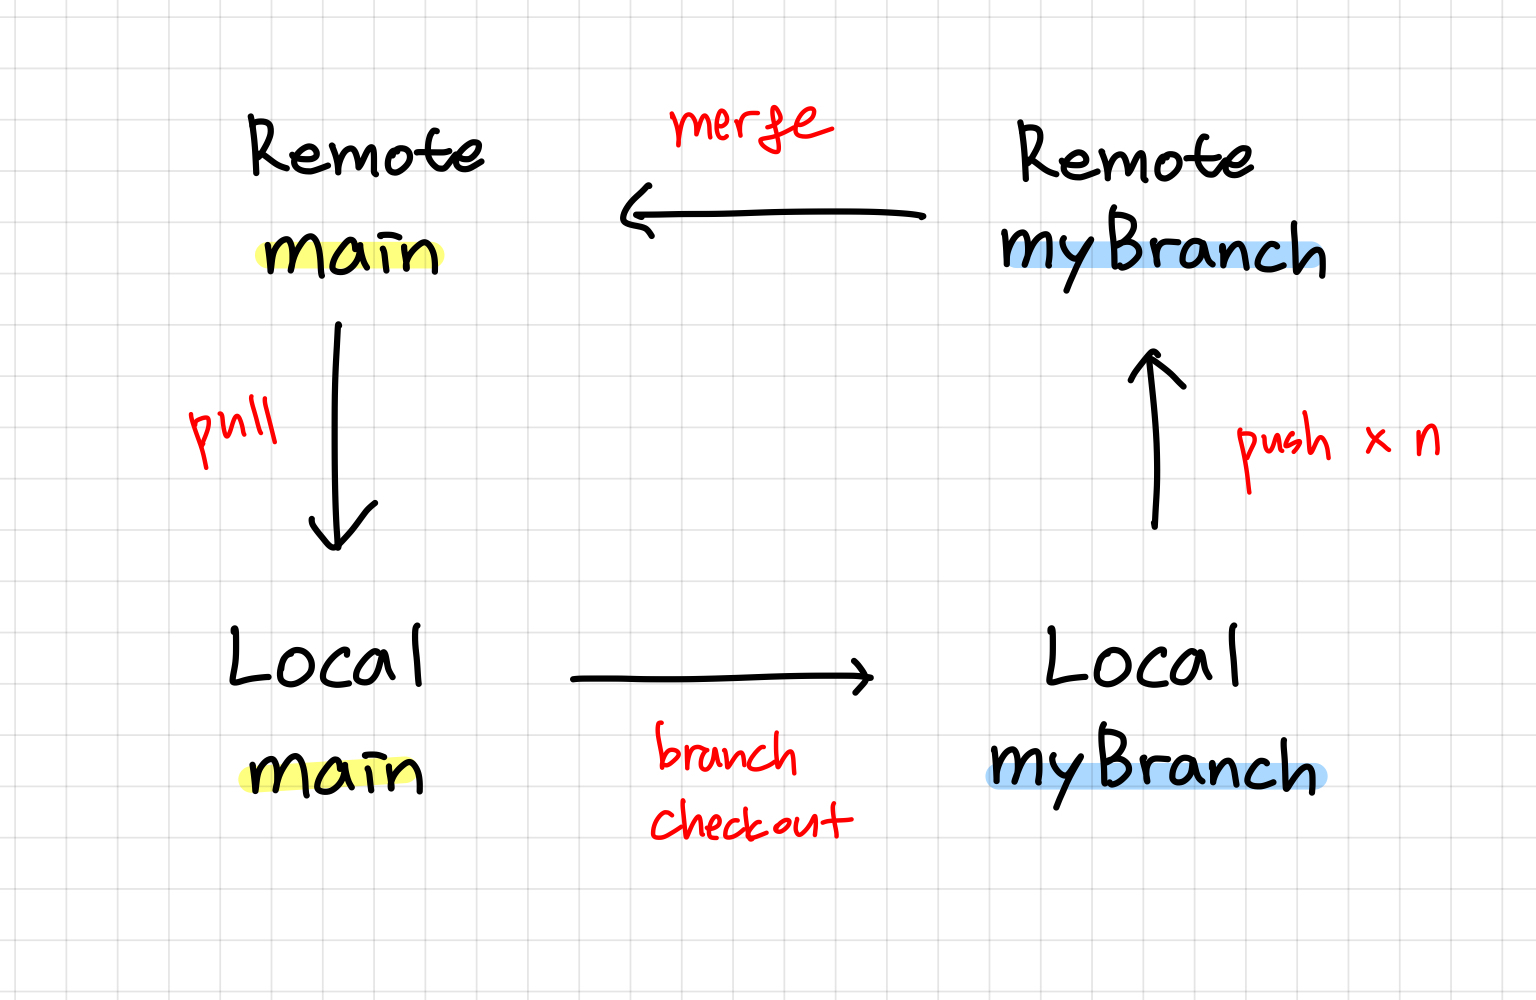 Remote
main
merge
Remote
myBranch
pull
push x n
Local
main
branch
checkout
Local
myBranch